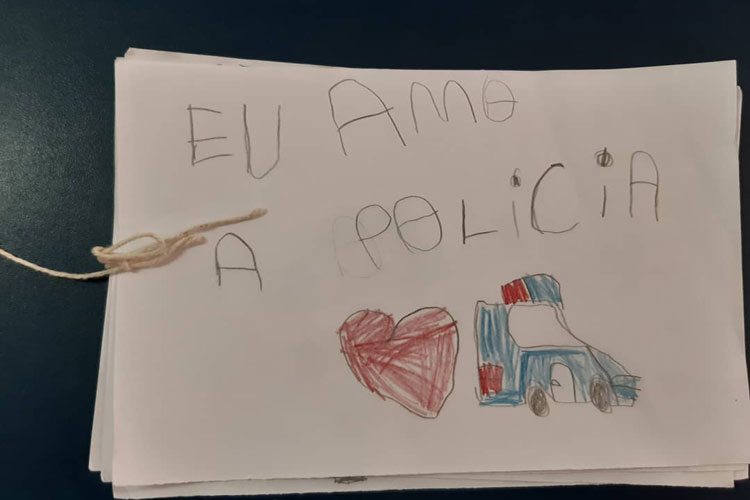 EU AMO
A POLiCiA